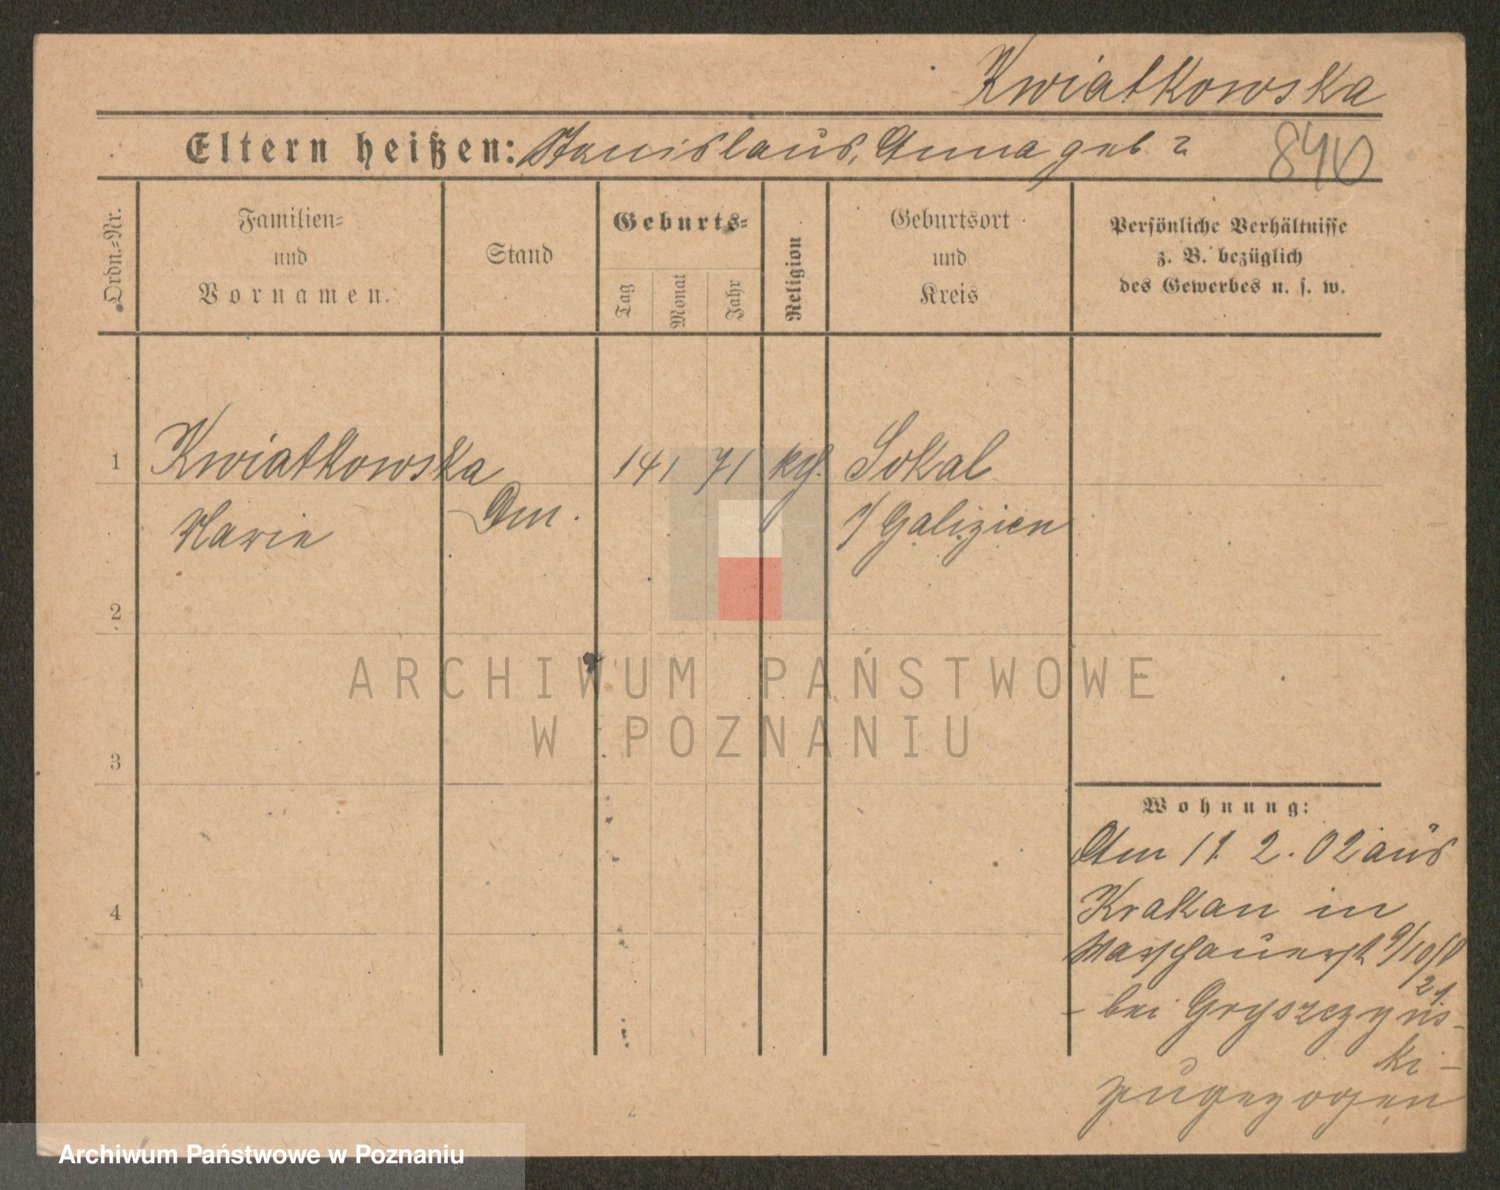 Kwiatkowska
Eltern heißen: Stanislaus, Anna geb. ?
840
Ordn.=Nr.
Familien=
und
Vornamen.
Stand
Geburts=
Tag
Monat
Jahr
Religion
Geburtsort
und
Kreis
Persönliche Verhältnisse
z. B. bezüglich
des Gewerbes u. s. w.
1
Kwiatkowska
Marie
14 1 71
kth.
Sokal
i/ Galizien
2
3
4
Wohnung:
Am 11. 2. 02 aus
Krakau in
Warschauerst 9/10
21
- bei Gryszczyńs-
ki -
zugezogen
ARCHIWUM PAŃSTWOWE
W POZNANIU
Archiwum Państwowe w Poznaniu